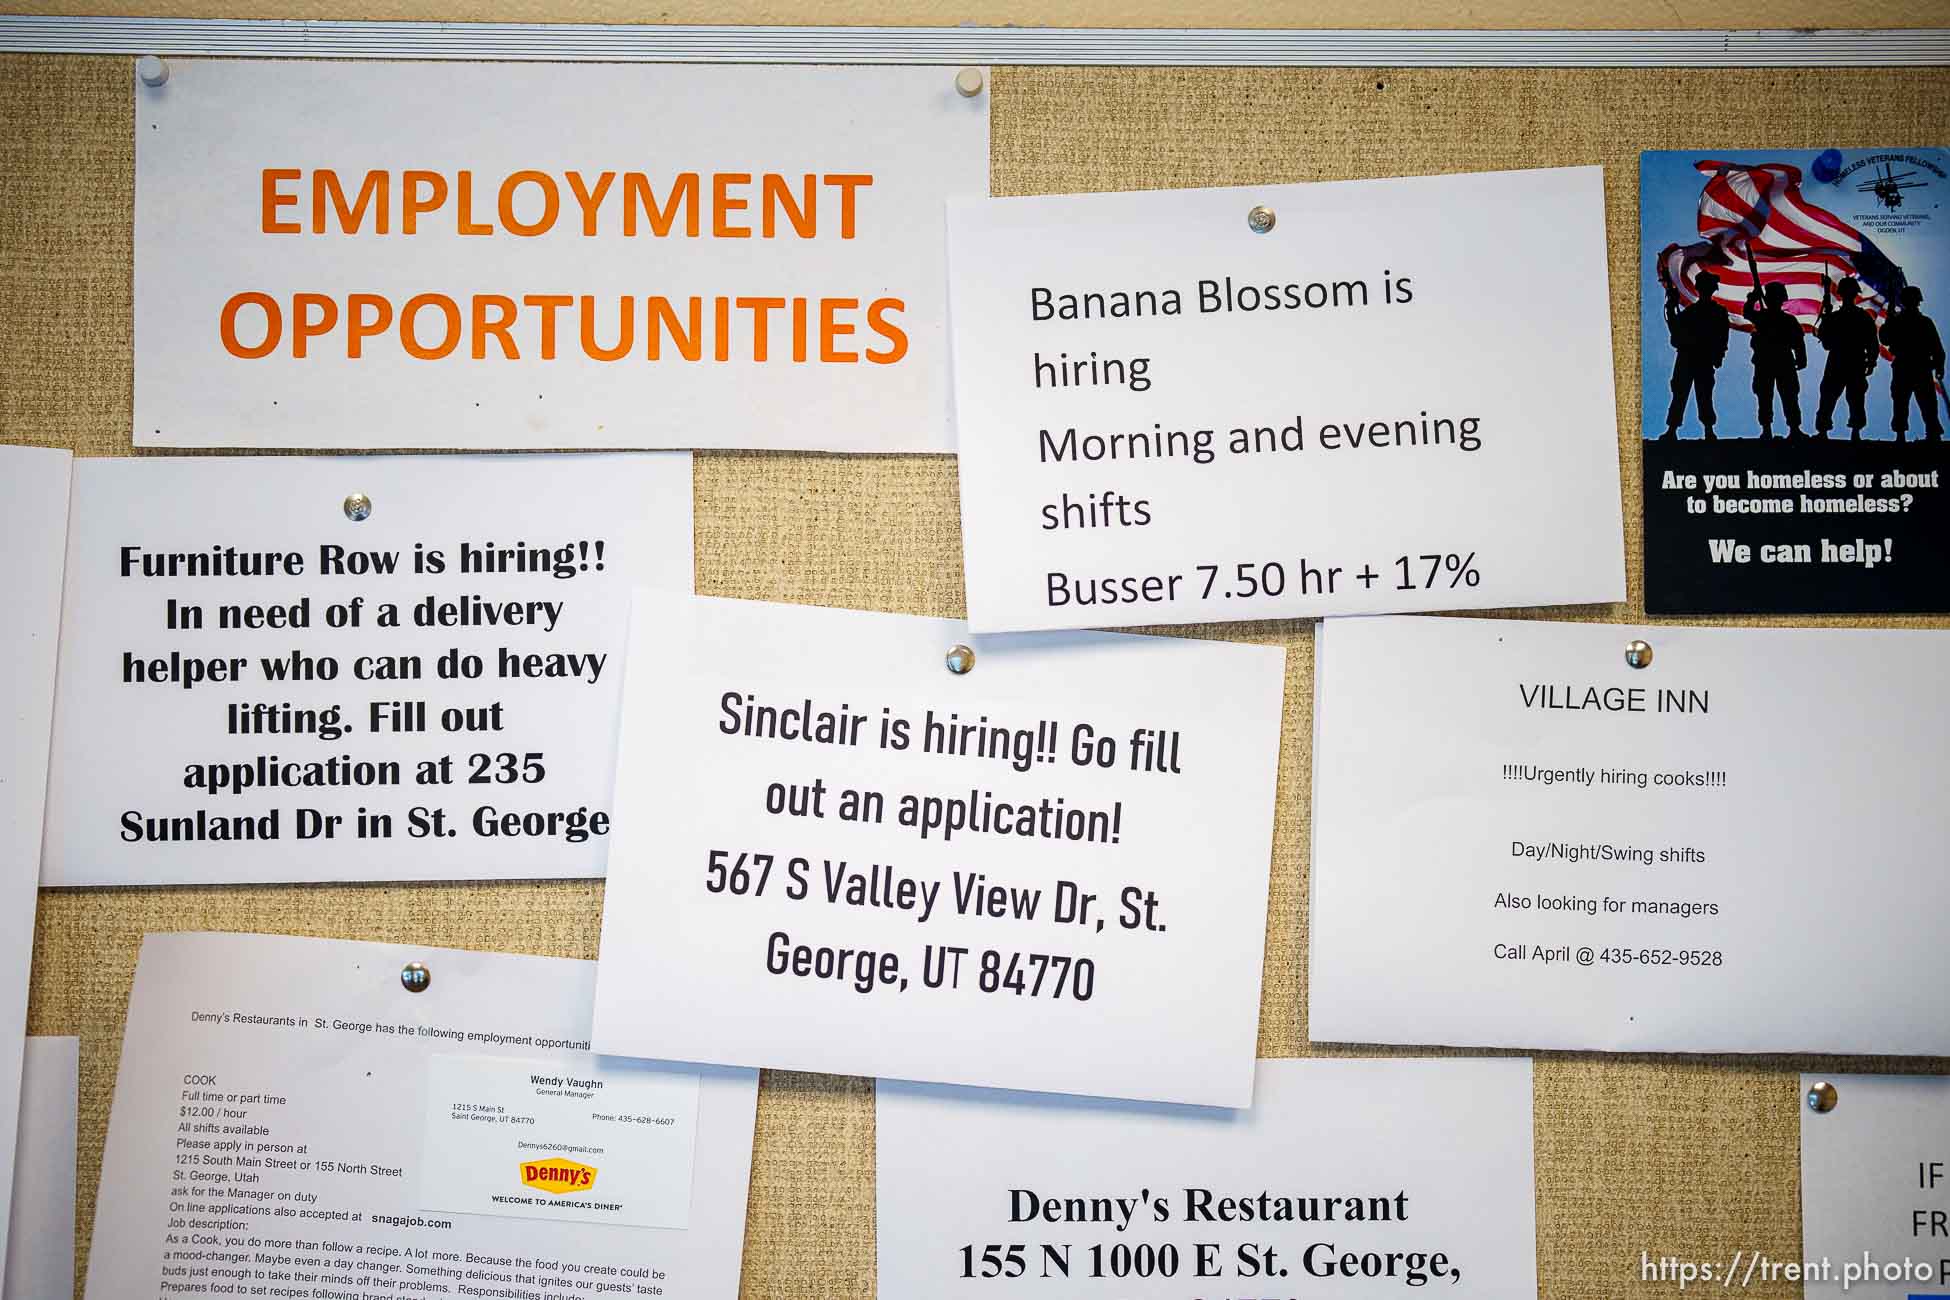 EMPLOYMENT
OPPORTUNITIES
Banana Blossom is
hiring
Morning and evening
shifts
Busser 7.50 hr + 17%
HOMELESS VETERANS FELLOWSHIP
VETERANS SERVING VETERANS,
AND OUR COMMUNITY
OGDEN, UT
Are you homeless or about
to become homeless?
We can help!
Furniture Row is hiring!!
In need of a delivery
helper who can do heavy
lifting. Fill out
application at 235
Sunland Dr in St. George
Sinclair is hiring!! Go fill
out an application!
567 S Valley View Dr, St.
George, UT 84770
VILLAGE INN
!!!!Urgently hiring cooks!!!!
Day/Night/Swing shifts
Also looking for managers
Call April @ 435-652-9528
Denny's Restaurants in St. George has the following employment opportuniti
COOK
Full time or part time
$12.00 / hour
All shifts available
Please apply in person at
1215 South Main Street or 155 North Street
St. George, Utah
ask for the Manager on duty
On line applications also accepted at snagajob.com
Job description:
As a Cook, you do more than follow a recipe. A lot more. Because the food you create could be
a mood-changer. Maybe even a day changer. Something delicious that ignites our guests' taste
buds just enough to take their minds off their problems. Responsibilities include:
Prepares food to set recipes following brand
Wendy Vaughn
General Manager
1215 S Main St
Saint George, UT 84770
Phone: 435-628-6607
Dennys6260@gmail.com
Denny's
WELCOME TO AMERICA'S DINER
Denny's Restaurant
155 N 1000 E St. George,
IF
FR
P
https://trent.photo